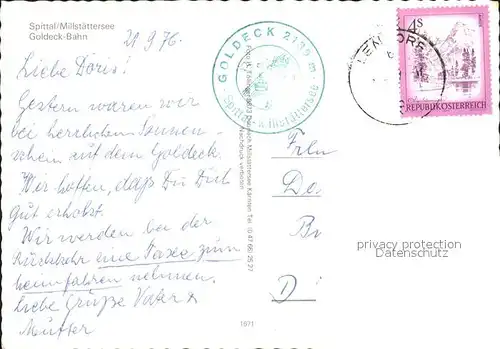 Spittal/Millstättersee
Goldeck-Bahn
21.9.76.
Liebe Doris!
Gestern waren wir
bei herrlichem Sonnen-
schein auf dem Goldeck.
Wir hoffen, daß Du Dich
gut erholst.
Wir werden bei der
Rückkehr eine Taxe zum
heimfahren nehmen.
Liebe Grüße Vater +
Mutter
GOLDECK 2139 m
Spittal-Millstättersee
4S
REPUBLIK ÖSTERREICH
Frln
Do
Br
D
privacy protection
Datenschutz
1971